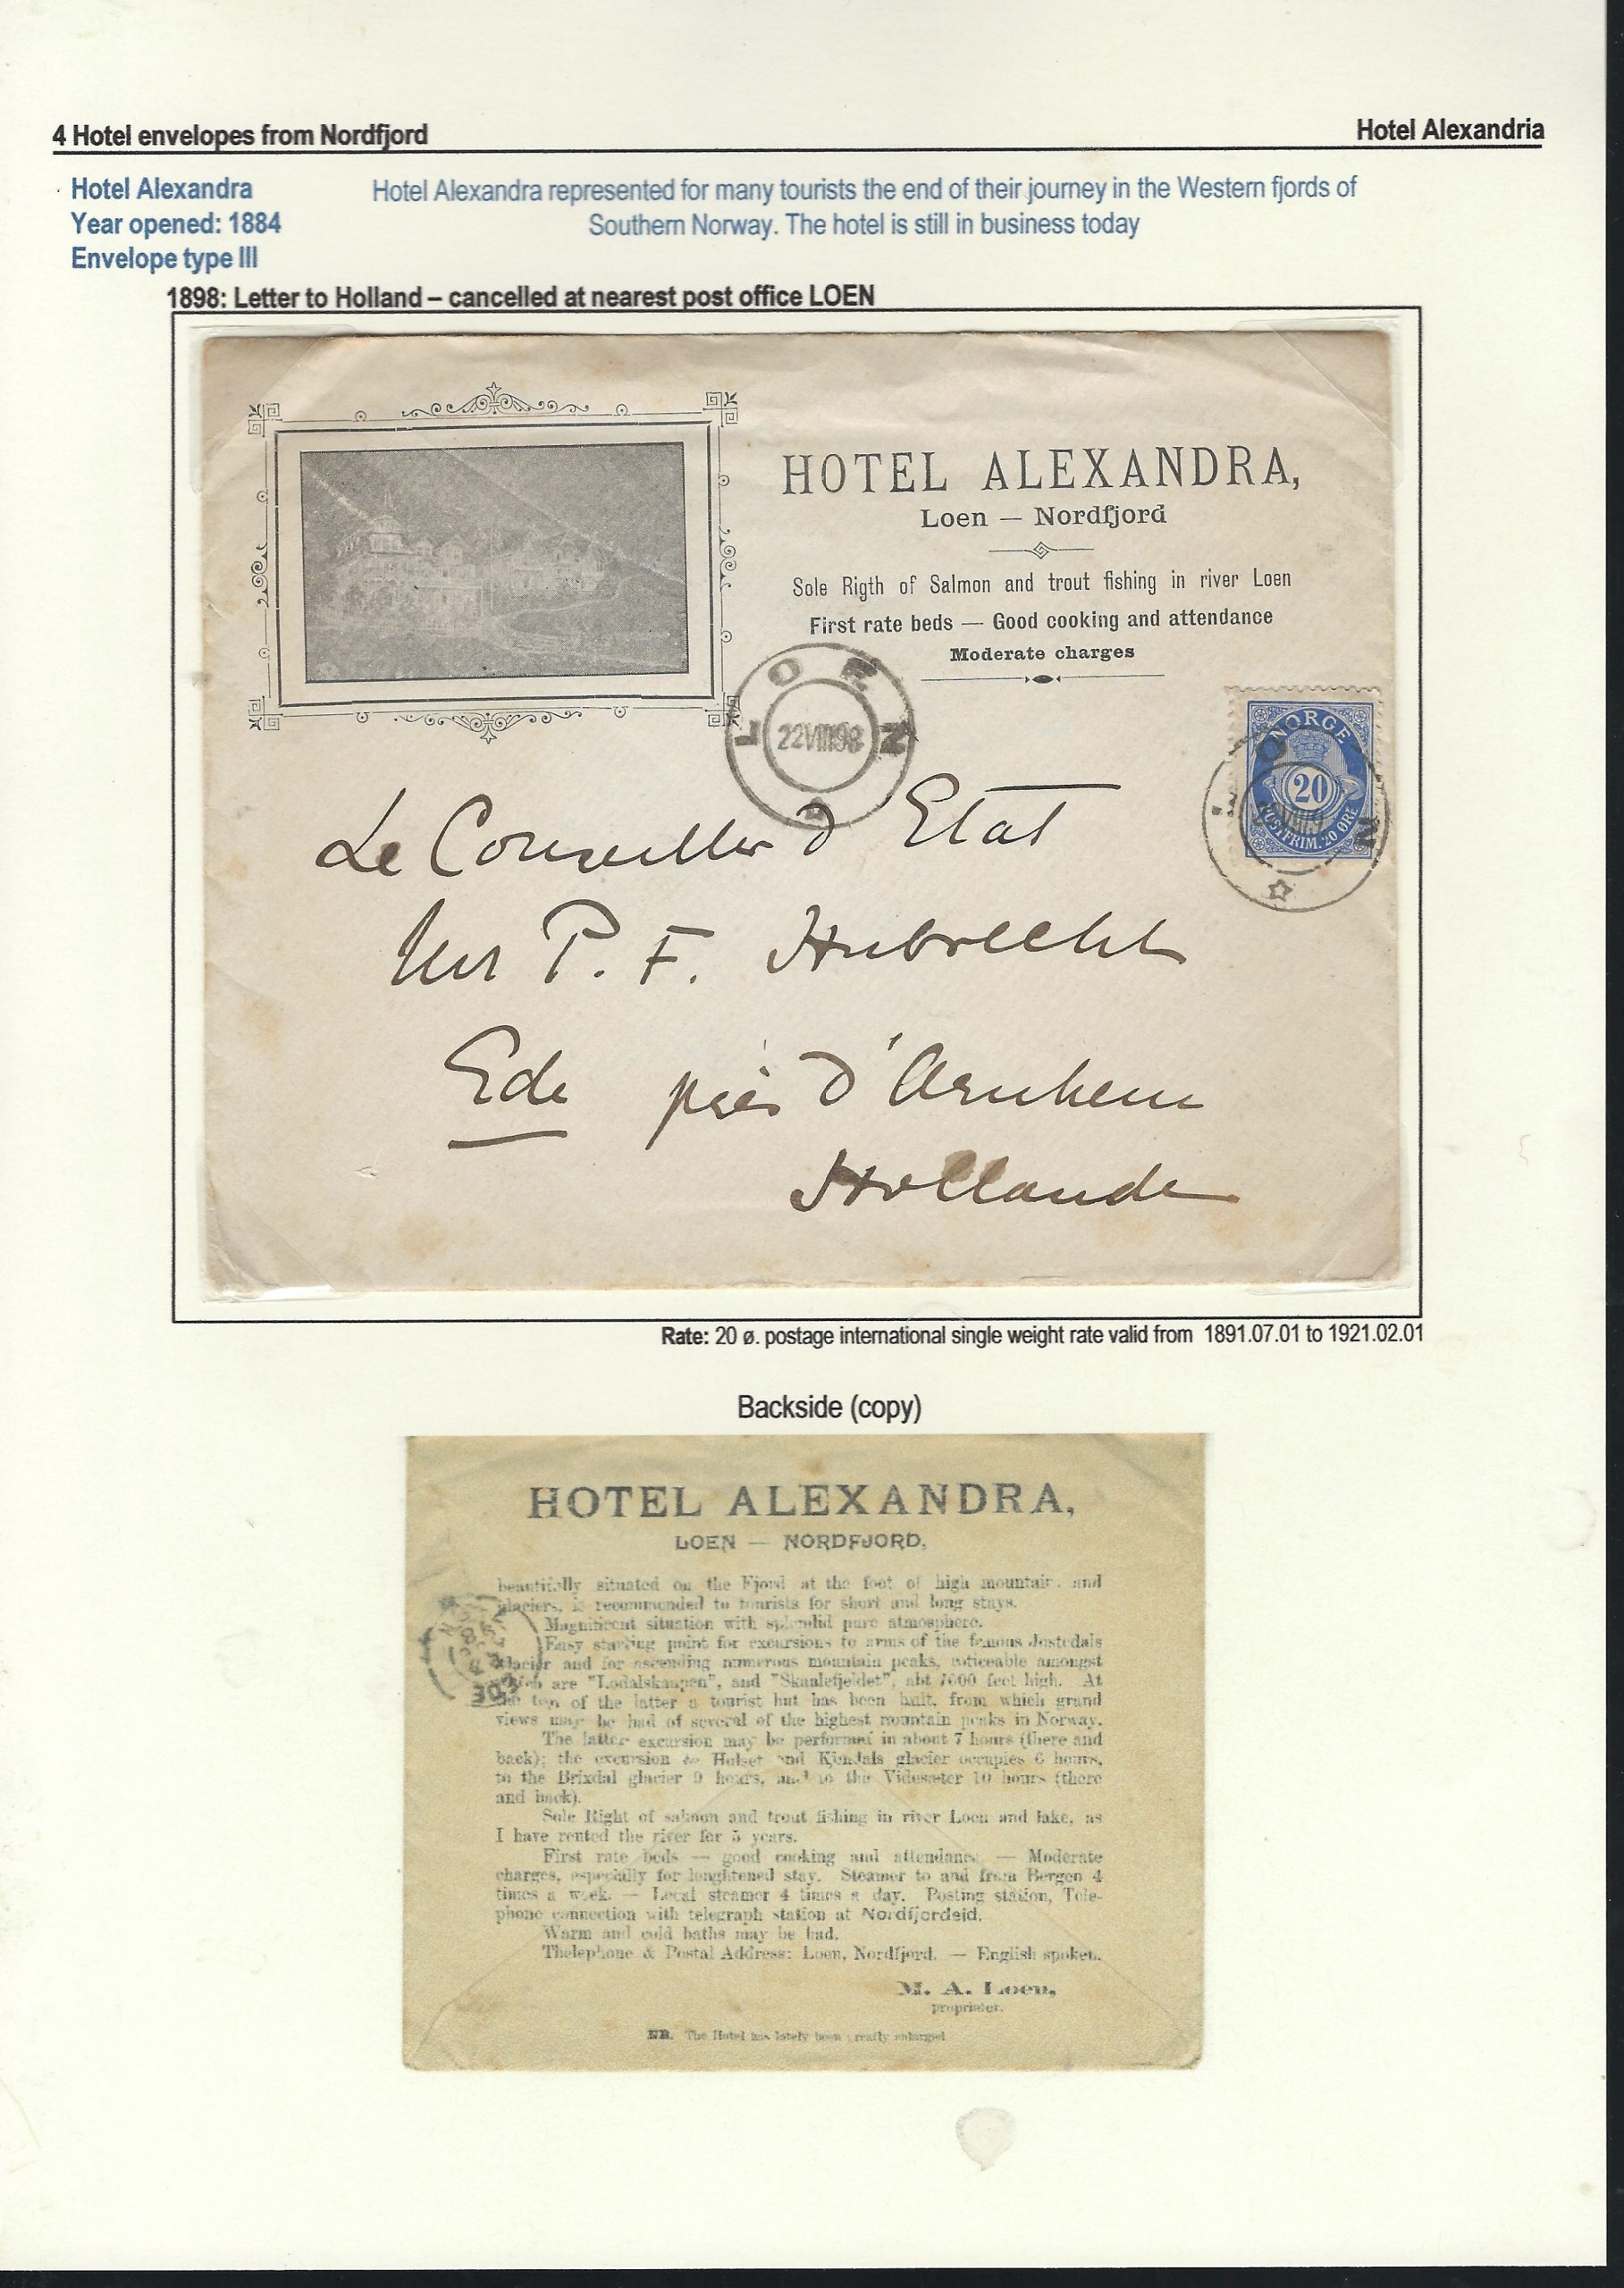 4 Hotel envelopes from Nordfjord
Hotel Alexandria
Hotel Alexandra
Year opened: 1884
Envelope type III
Hotel Alexandra represented for many tourists the end of their journey in the Western fjords of
Southern Norway. The hotel is still in business today
1898: Letter to Holland – cancelled at nearest post office LOEN
HOTEL ALEXANDRA,
Loen — Nordfjord
Sole Rigth of Salmon and trout fishing in river Loen
First rate beds — Good cooking and attendance
Moderate charges
LOEN
22VIII98
NORGE
20
POSTFRIM. 20 ØRE
Le Conseiller d'Etat
P. F. Hubrecht
Ede près d'Arnhem
Hollande
Rate: 20 ø. postage international single weight rate valid from 1891.07.01 to 1921.02.01
Backside (copy)
HOTEL ALEXANDRA,
LOEN — NORDFJORD,
beautifully situated on the Fjord at the foot of high mountain and
glaciers, is recommended to tourists for short and long stays.
Magnificent situation with splendid pure atmosphere.
Easy starting point for excursions to arms of the famous Jostedals
glacier and for ascending numerous mountain peaks, noticeable amongst
which are "Lodalskaupen", and "Skaalefjeldet", abt feet high. At
the top of the latter a tourist hut has been built, from which grand
views may be had of several of the highest mountain peaks in Norway.
The latter excursion may be performed in about 7 hours (there and
back); the excursion to and Kjendals glacier occupies 6 hours,
to the Brixdal glacier 9 hours, and to the Videsæter 10 hours (there
and back).
Sole Right of salmon and trout fishing in river Loen and lake, as
I have rented the river for 5 years.
First rate beds — good cooking and attendance — Moderate
charges, especially for lenghtened stay. Steamer to and from Bergen 4
times a week. — Local steamer 4 times a day. Posting station, Tele-
phone connection with telegraph station at Nordfjordeid.
Warm and cold baths may be had.
Thelephone & Postal Address: Loen, Nordfjord. — English spoken.
M. A. Loen,
proprietor.
NB. The Hotel has lately been greatly enlarged
EDE